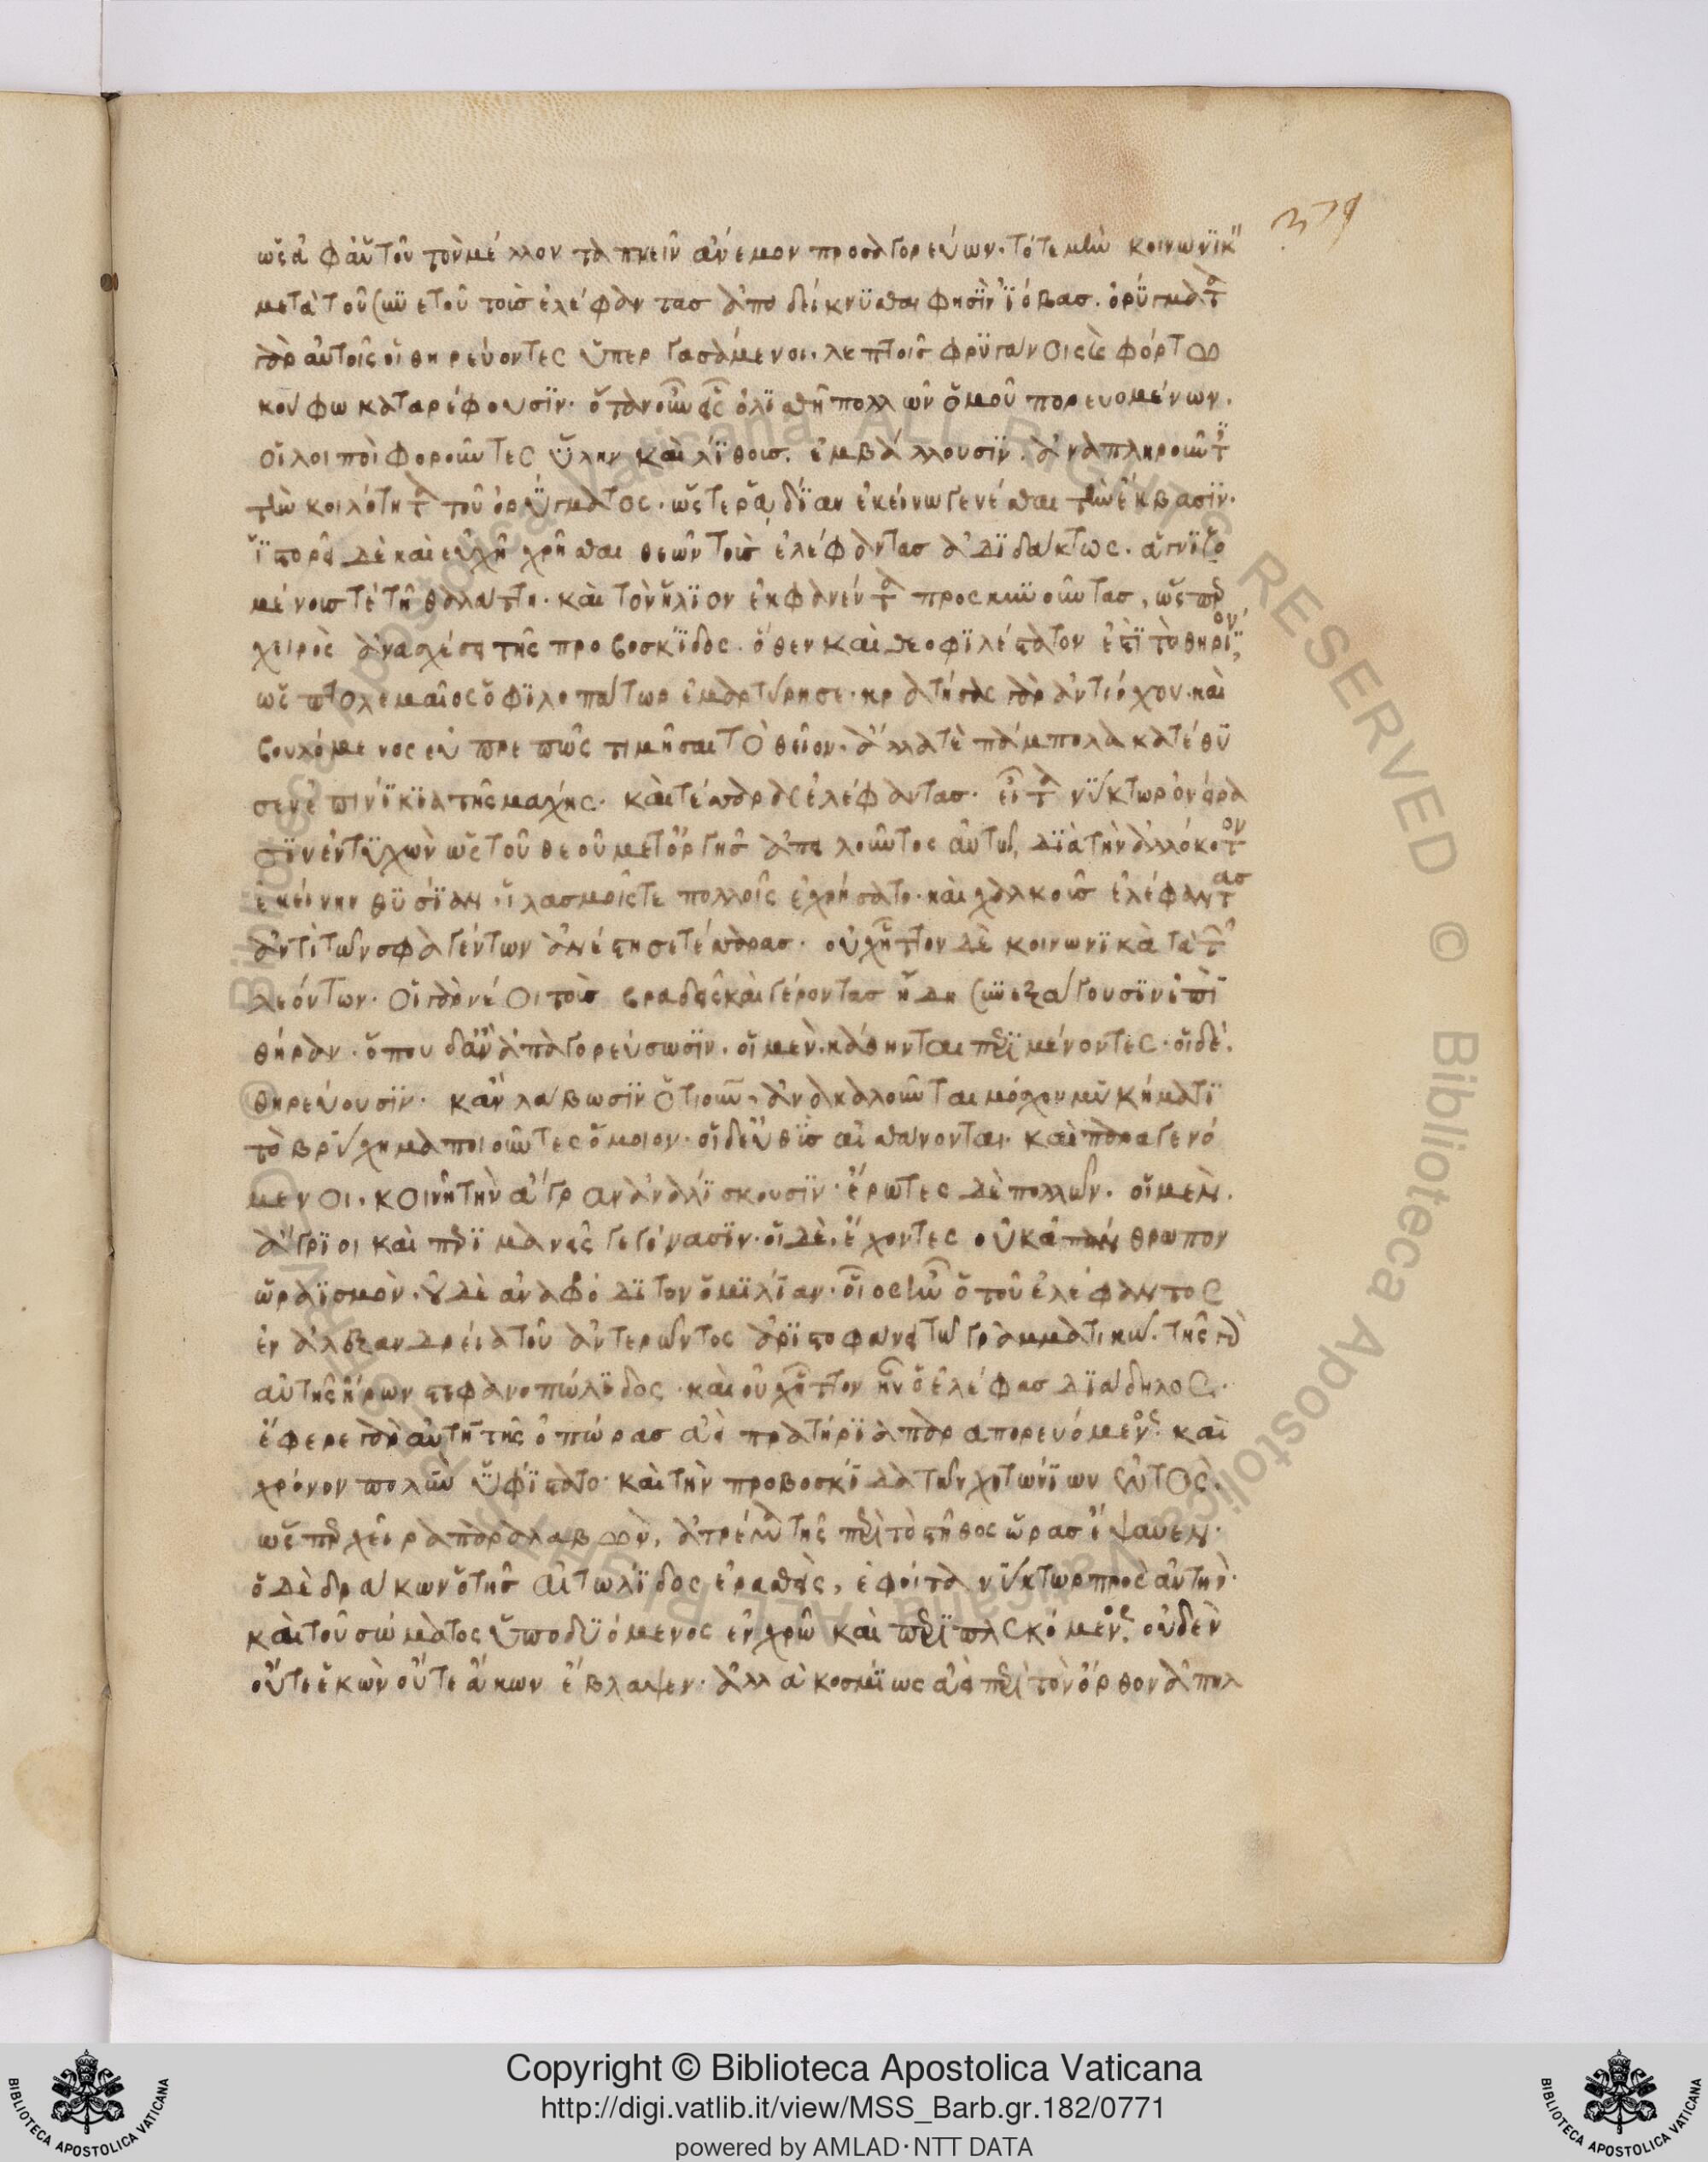 379
ὡς ἀφ' αὑτοῦ τὸν μέλλοντα πνεῖν ἄνεμον προσαγορεύων. τό τε μὴν κοινωνικὸν
μετὰ τοῦ συνετοῦ τοὺς ἐλέφαντας ἀποδείκνυσθαί φησιν ἰόβας. ὀρύγματα
γὰρ αὐτοῖς οἱ θηρεύοντες ὑπεργασάμενοι, λεπτοῖς φρυγάνοις καὶ φόρτῳ
κούφῳ καταρέφουσιν. ὅταν οὖν τις ὀλίσθῃ πολλῶν ὁμοῦ πορευομένων.
οἱ λοιποὶ φοροῦντες ὕλην καὶ λίθους, ἐμβάλλουσιν, ἀναπληροῦντες
τὴν κοιλότητα τοῦ ὀρύγματος. ὥστε ῥᾳδίαν ἐκείνῳ γενέσθαι τὴν ἔκβασιν.
ἱστορεῖ δὲ καὶ εὐχῇ χρῆσθαι θεῶν τοὺς ἐλέφαντας ἀδιδάκτως. ἁγνιζο
μένους τε τῇ θαλάττῃ. καὶ τὸν ἥλιον ἐκφανέντα προσκυνοῦντας, ὥσπερ
χειρὸς ἀνασχέσει τῆς προβοσκίδος. ὅθεν καὶ θεοφιλέστατόν ἐστι τὸ θηρίον,
ὡς πτολεμαῖος ὁ φιλοπάτωρ ἐμαρτύρησε. κρατήσας γὰρ ἀντιόχου. καὶ
βουλόμενος εὐπρεπῶς τιμῆσαι τὸ θεῖον. ἄλλα τε πάμπολα κατέθυ
σεν ἐπινίκια τῆς μάχης. καὶ τέσσαρας ἐλέφαντας. εἶτα νύκτωρ ὀνείρα
σιν ἐντυχὼν ὡς τοῦ θεοῦ μετ' ὀργῆς ἀπειλοῦντος αὐτῷ, διὰ τὴν ἀλλόκοτον
ἐκείνην θυσίαν. ἱλασμοῖς τε πολλοῖς ἐχρήσατο. καὶ χαλκοῦς ἐλέφαντας
ἀντὶ τῶν σφαγέντων ἀνέστησε τέσσαρας. οὐχ ἧττον δὲ κοινωνικὰ τὰ τῶν
λεόντων. οἱ γὰρ νέοι τοὺς βραδεῖς καὶ γέροντας ἤδη συνεξάγουσιν ἐπὶ
θήραν. ὅπου δ' ἂν ἀπαγορεύσωσιν. οἱ μὲν. κάθηνται περιμένοντες. οἱ δέ.
θηρεύουσιν. κἂν λάβωσιν ὁτιοῦν, ἀνακαλοῦνται μόσχου μυκήματι
τὸ βρύχημα ποιοῦντες ὅμοιον. οἱ δ' εὐθὺς αἰσθάνονται. καὶ παραγενό
μενοι. κοινῇ τὴν ἄγραν ἀναλίσκουσιν. ἔρωτες δὲ πολλῶν. οἱ μὲν.
ἄγριοι καὶ περιμανεῖς γεγόνασιν. οἱ δὲ. ἔχοντες οὐκ ἀπάνθρωπον
ὡραϊσμὸν. οὐδὲ ἀναφρόδιτον ὁμιλίαν. οἷος ἦν ὁ τοῦ ἐλέφαντος
ἐν ἀλεξανδρείᾳ τοῦ ἀντερῶντος ἀριστοφάνει τῷ γραμματικῷ. τῆς γὰρ
αὐτῆς ἤρων στεφανοπώλιδος. καὶ οὐχ ἧττον ἦν ὁ ἐλέφας διάδηλος.
ἔφερε γὰρ αὐτῇ τῆς ὀπώρας ἀεὶ πρατήρια παραπορευόμενος. καὶ
χρόνον πολὺν ὑφίστατο. καὶ τὴν προβοσκίδα τῶν χιτωνίων ἐντὸς.
ὥσπερ χεῖρα παραλαβὼν, ἀτρέμα τῆς περὶ τὸ στῆθος ὥρας ἔψαυεν.
ὁ δὲ δράκων ὁ τῆς αἰτωλίδος ἐρασθεὶς, ἐφοίτα νύκτωρ πρὸς αὐτήν.
καὶ τοῦ σώματος ὑποδυόμενος ἐν χρῷ καὶ περιπλεκόμενος. οὐδὲν
οὔτε ἑκὼν οὔτε ἄκων ἔβλαψεν. ἀλλὰ κοσμίως ἀεὶ περὶ τὸν ὄρθον ἀπηλ
Copyright © Biblioteca Apostolica Vaticana
http://digi.vatlib.it/view/MSS_Barb.gr.182/0771
powered by AMLAD·NTT DATA